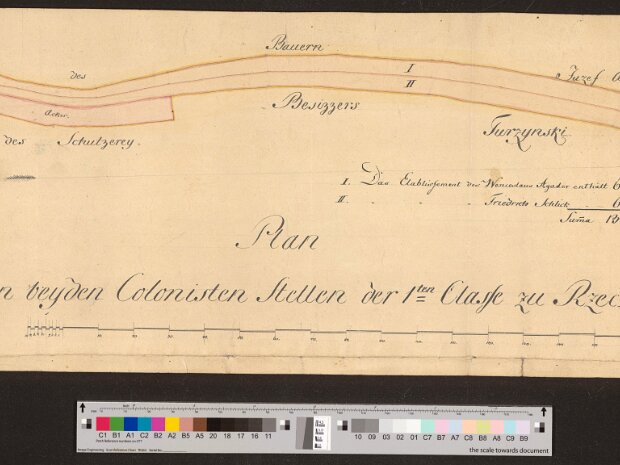 Bauern
des
I
II
Juzef
Acker.
Besizzers
des Schulzerey.
Turzynski
I. Das Etablissement des enthält 6
II. " " Friedrich Schlick 6
Suma
Plan
n beyden Colonisten Stellen der 1ten Classe zu Rzec
C1 B1 A1 C2 B2 A2 B5 A5 20 18 17 16 11
10 09 03 02 01 C7 B7 A7 C8 B8 A8 C9 B9
the scale towards document